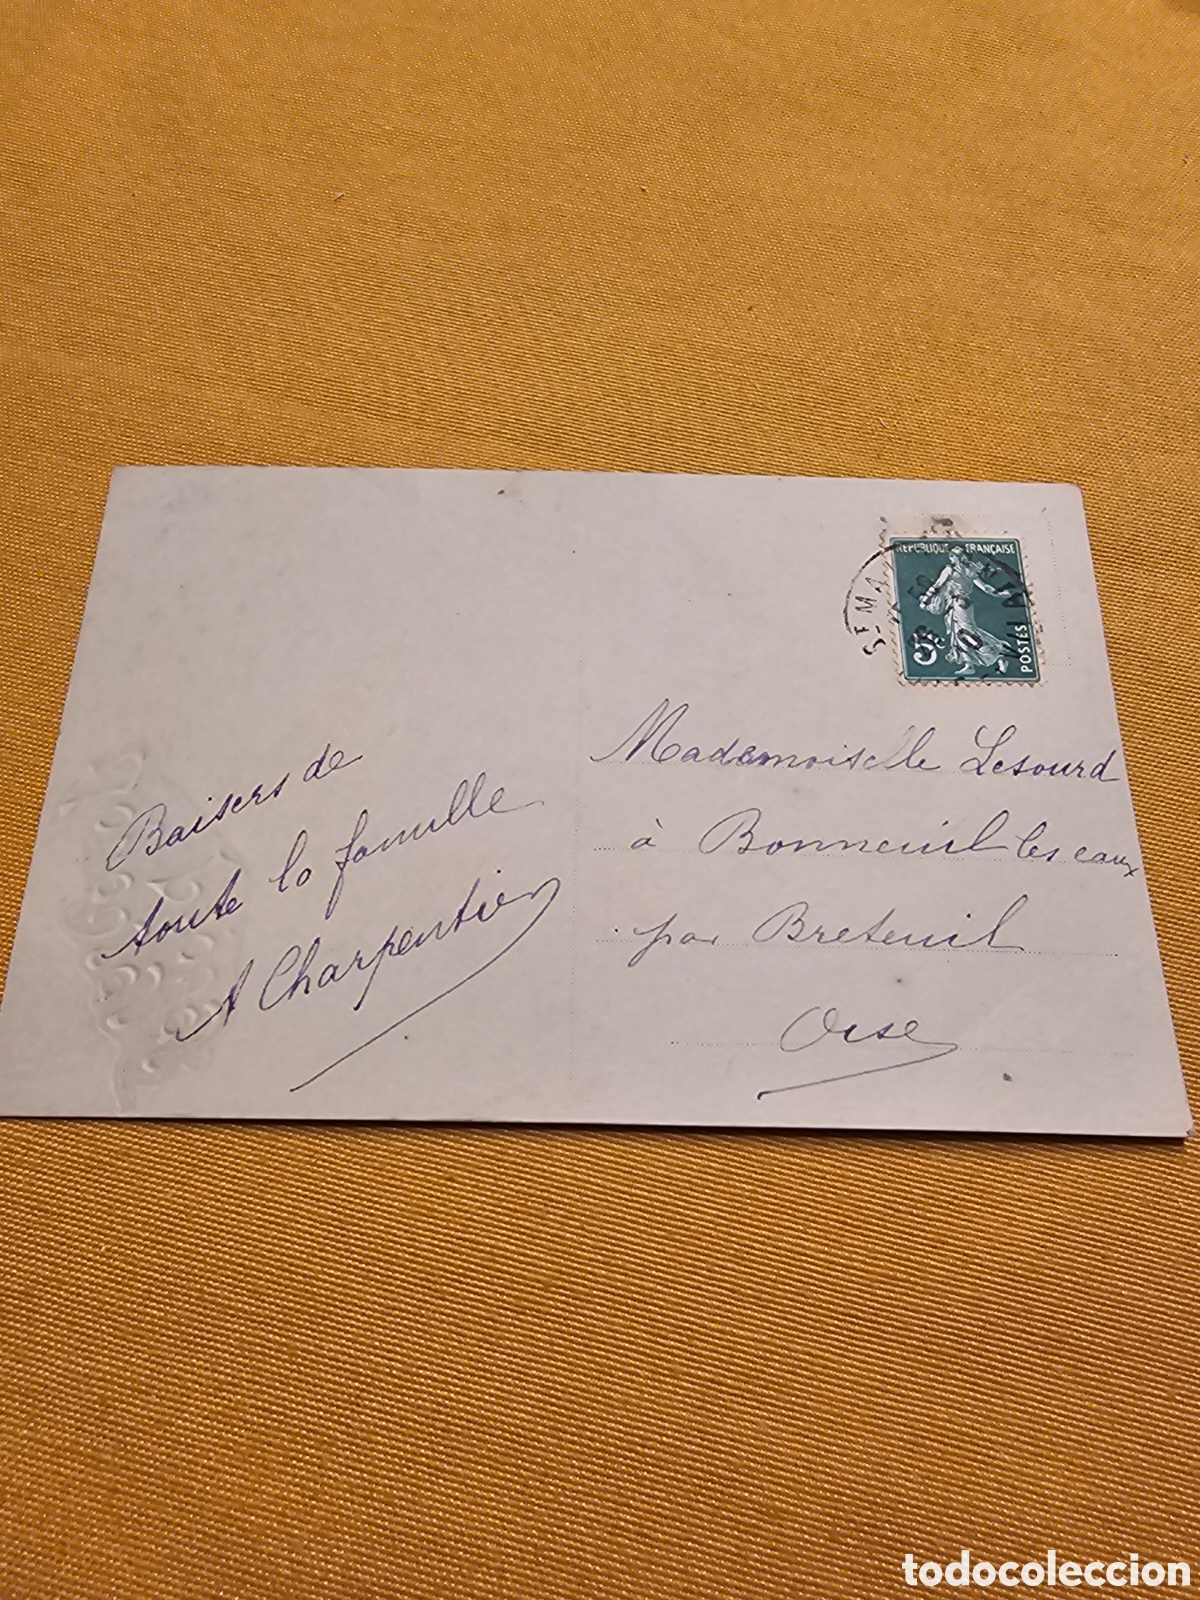 RÉPUBLIQUE FRANÇAISE
5c
POSTES
Sᵀ MA
Mademoiselle Lesourd
à Bonneuil les eaux
par Breteuil
Oise
Baisers de
toute la famille
A Charpentier
todocoleccion